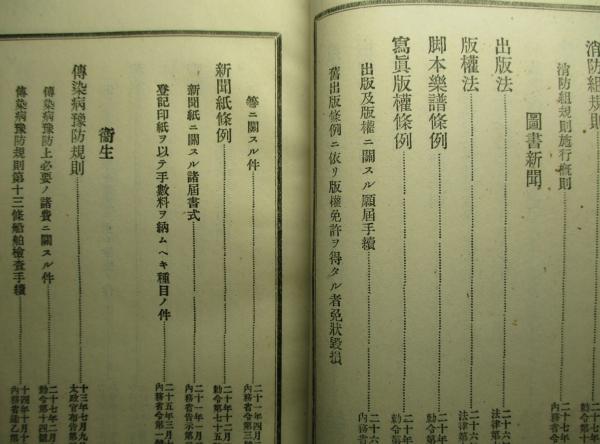 消防組規則
消防組規則施行概則 二十七年
圖書新聞
出版法 二十六 法律第
版權法 二十六 法律第
脚本樂譜條例 二十年 勅令第
寫眞版權條例 二十年 勅令第
出版及版權ニ關スル願屆手續 二十六 內務省
舊出版條例ニ依リ版權免許ヲ得タル者免狀毀損
等ニ關スル件 二十一年四月 內務省令第三
新聞紙條例 二十年十二月 勅令第七十五
新聞紙ニ關スル諸屆書式 二十一年一月 內務省告示第
登記印紙ヲ以テ手數料ヲ納ムヘキ種目ノ件 二十五年三月 內務省令第一
衞生
傳染病豫防規則 十三年七月九 太政官布告第
傳染病豫防上必要ノ諸費ニ關スル件 二十七年二月 勅令第十四
傳染病豫防規則第十三條船舶檢査手續 十四年十月十 內務省達乙